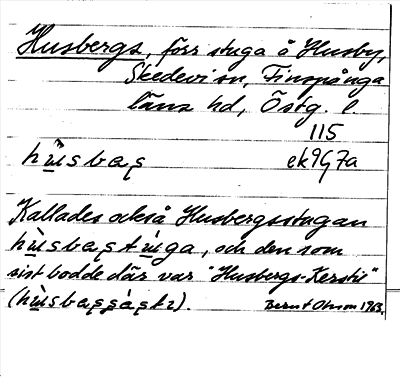 Husbergs, förr stuga å Husby,
Skedevi sn, Finspånga
läns hd, Östg. l.
115
hùsbaş ek9G7a
Kallades också Husbergsstugan
hùsbaştùga, och den som
sist bodde där var "Husbergs-Kersti"
(hùsbaşşáştı).
Bernt Olsson 1963.